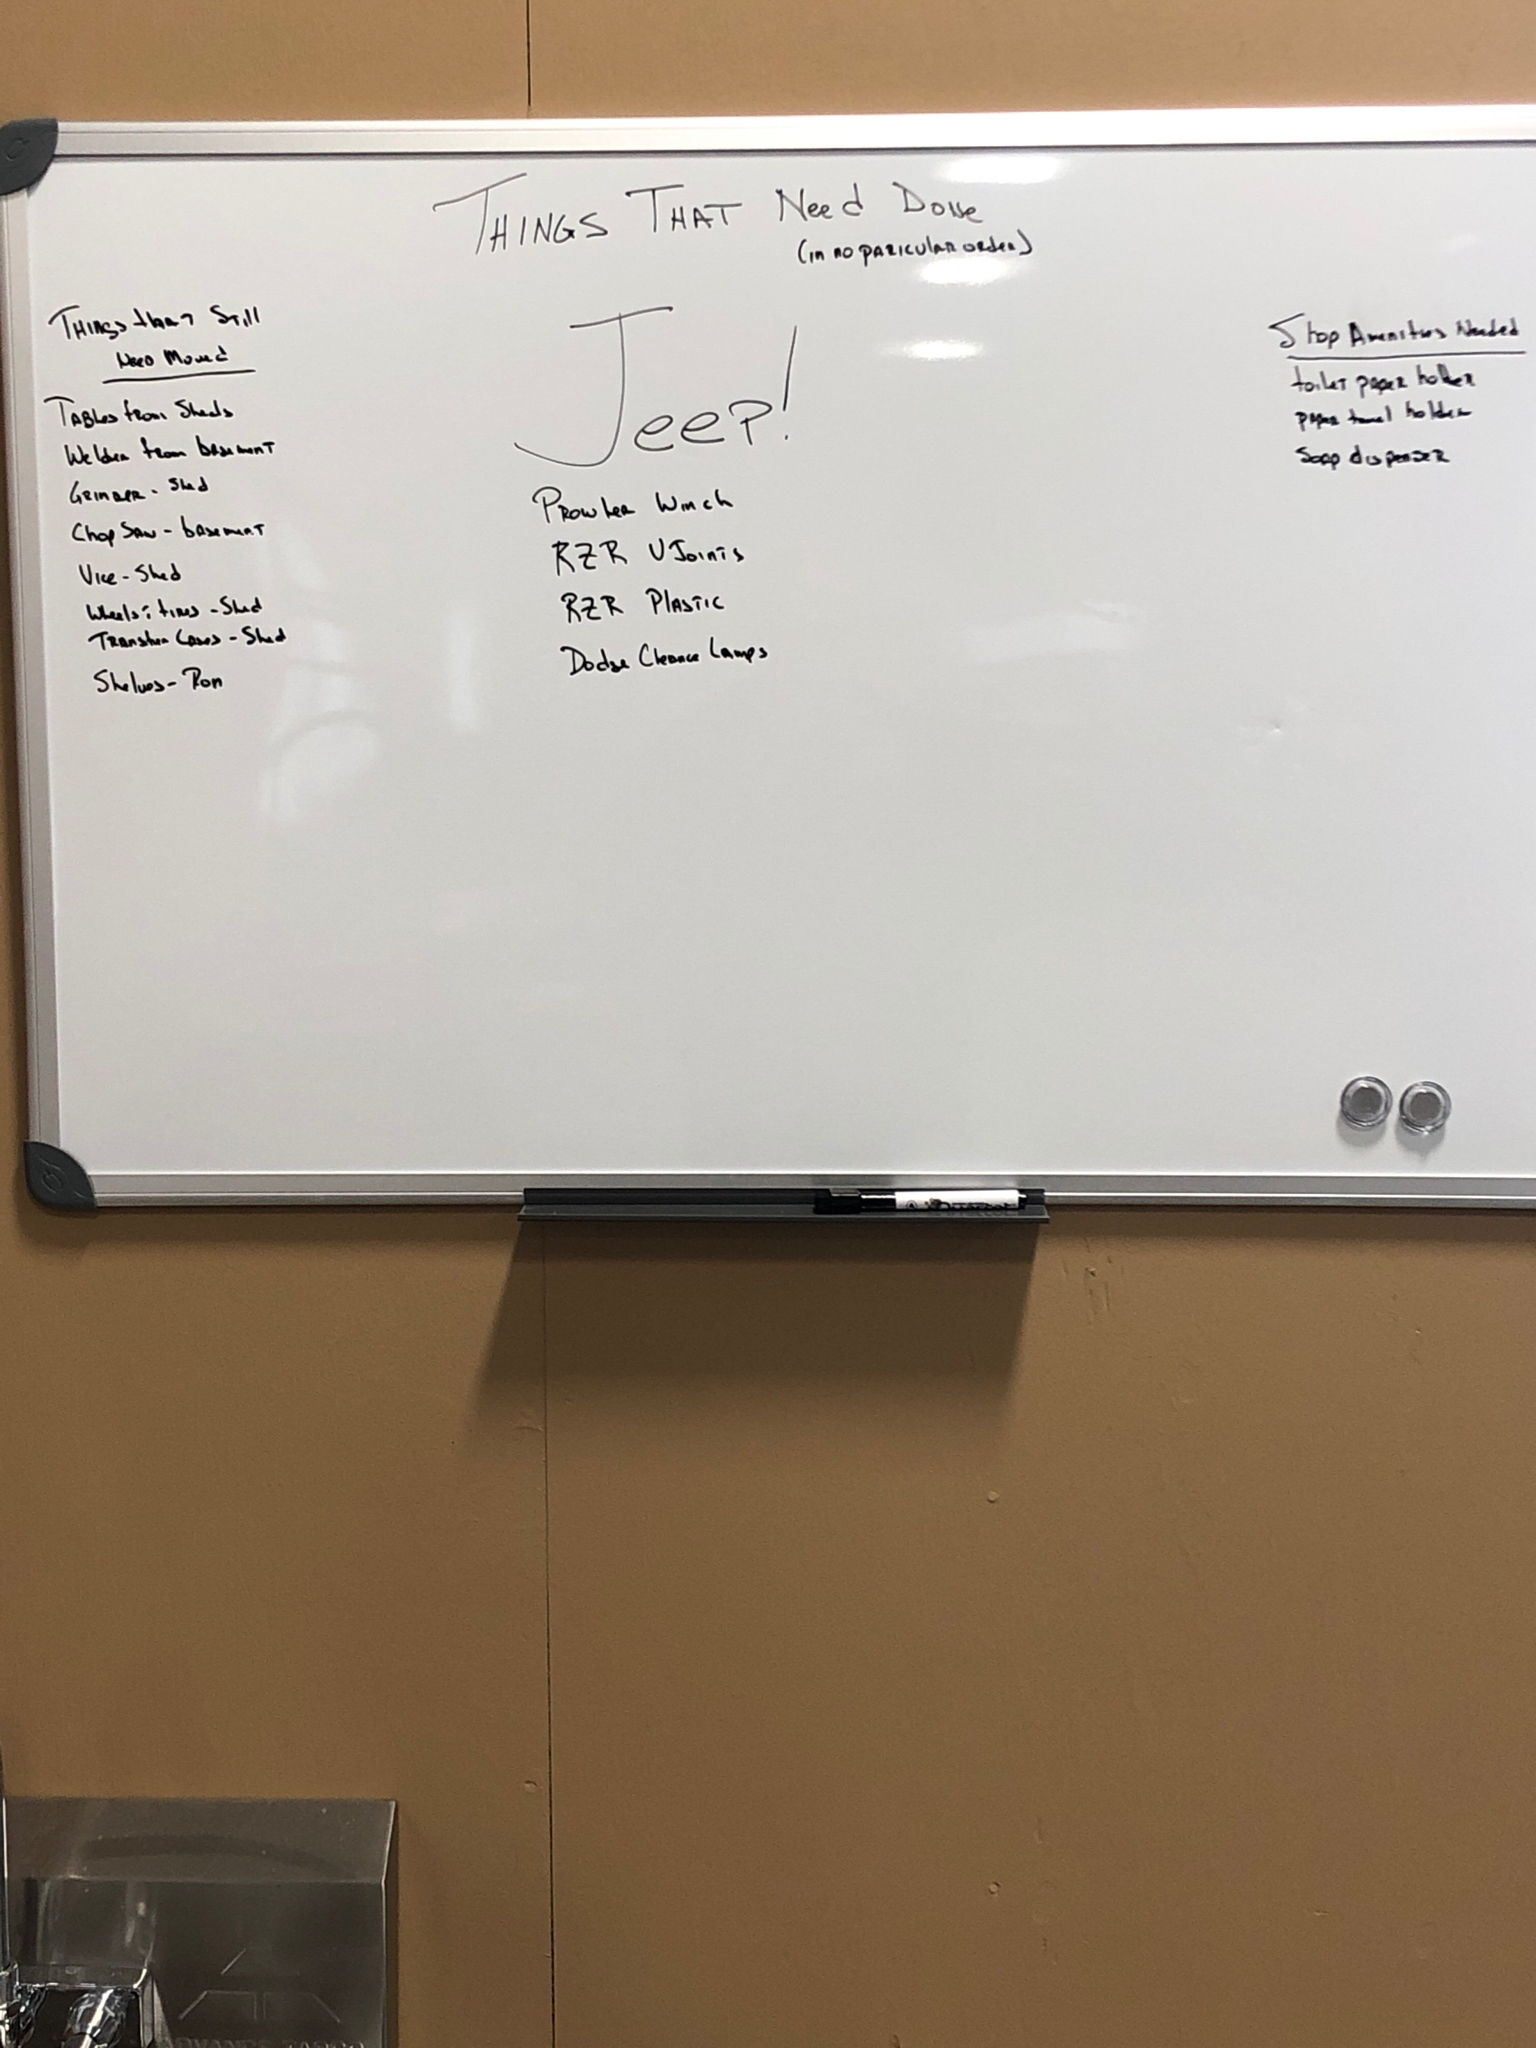 THINGS THAT Need Done
(in no paricular order)
Things that Still
Need Moved
Tables from Sheds
Welder from basement
Grinder - Shed
Chop Saw - basement
Vice - Shed
Wheels : tires - Shed
Transfer Cases - Shed
Shelves - Ron
Jeep!
Prowler Winch
RZR UJoints
RZR Plastic
Dodge Clearance Lamps
Shop Amenities Needed
toilet paper holder
paper towel holder
Soap dispenser
Quartet